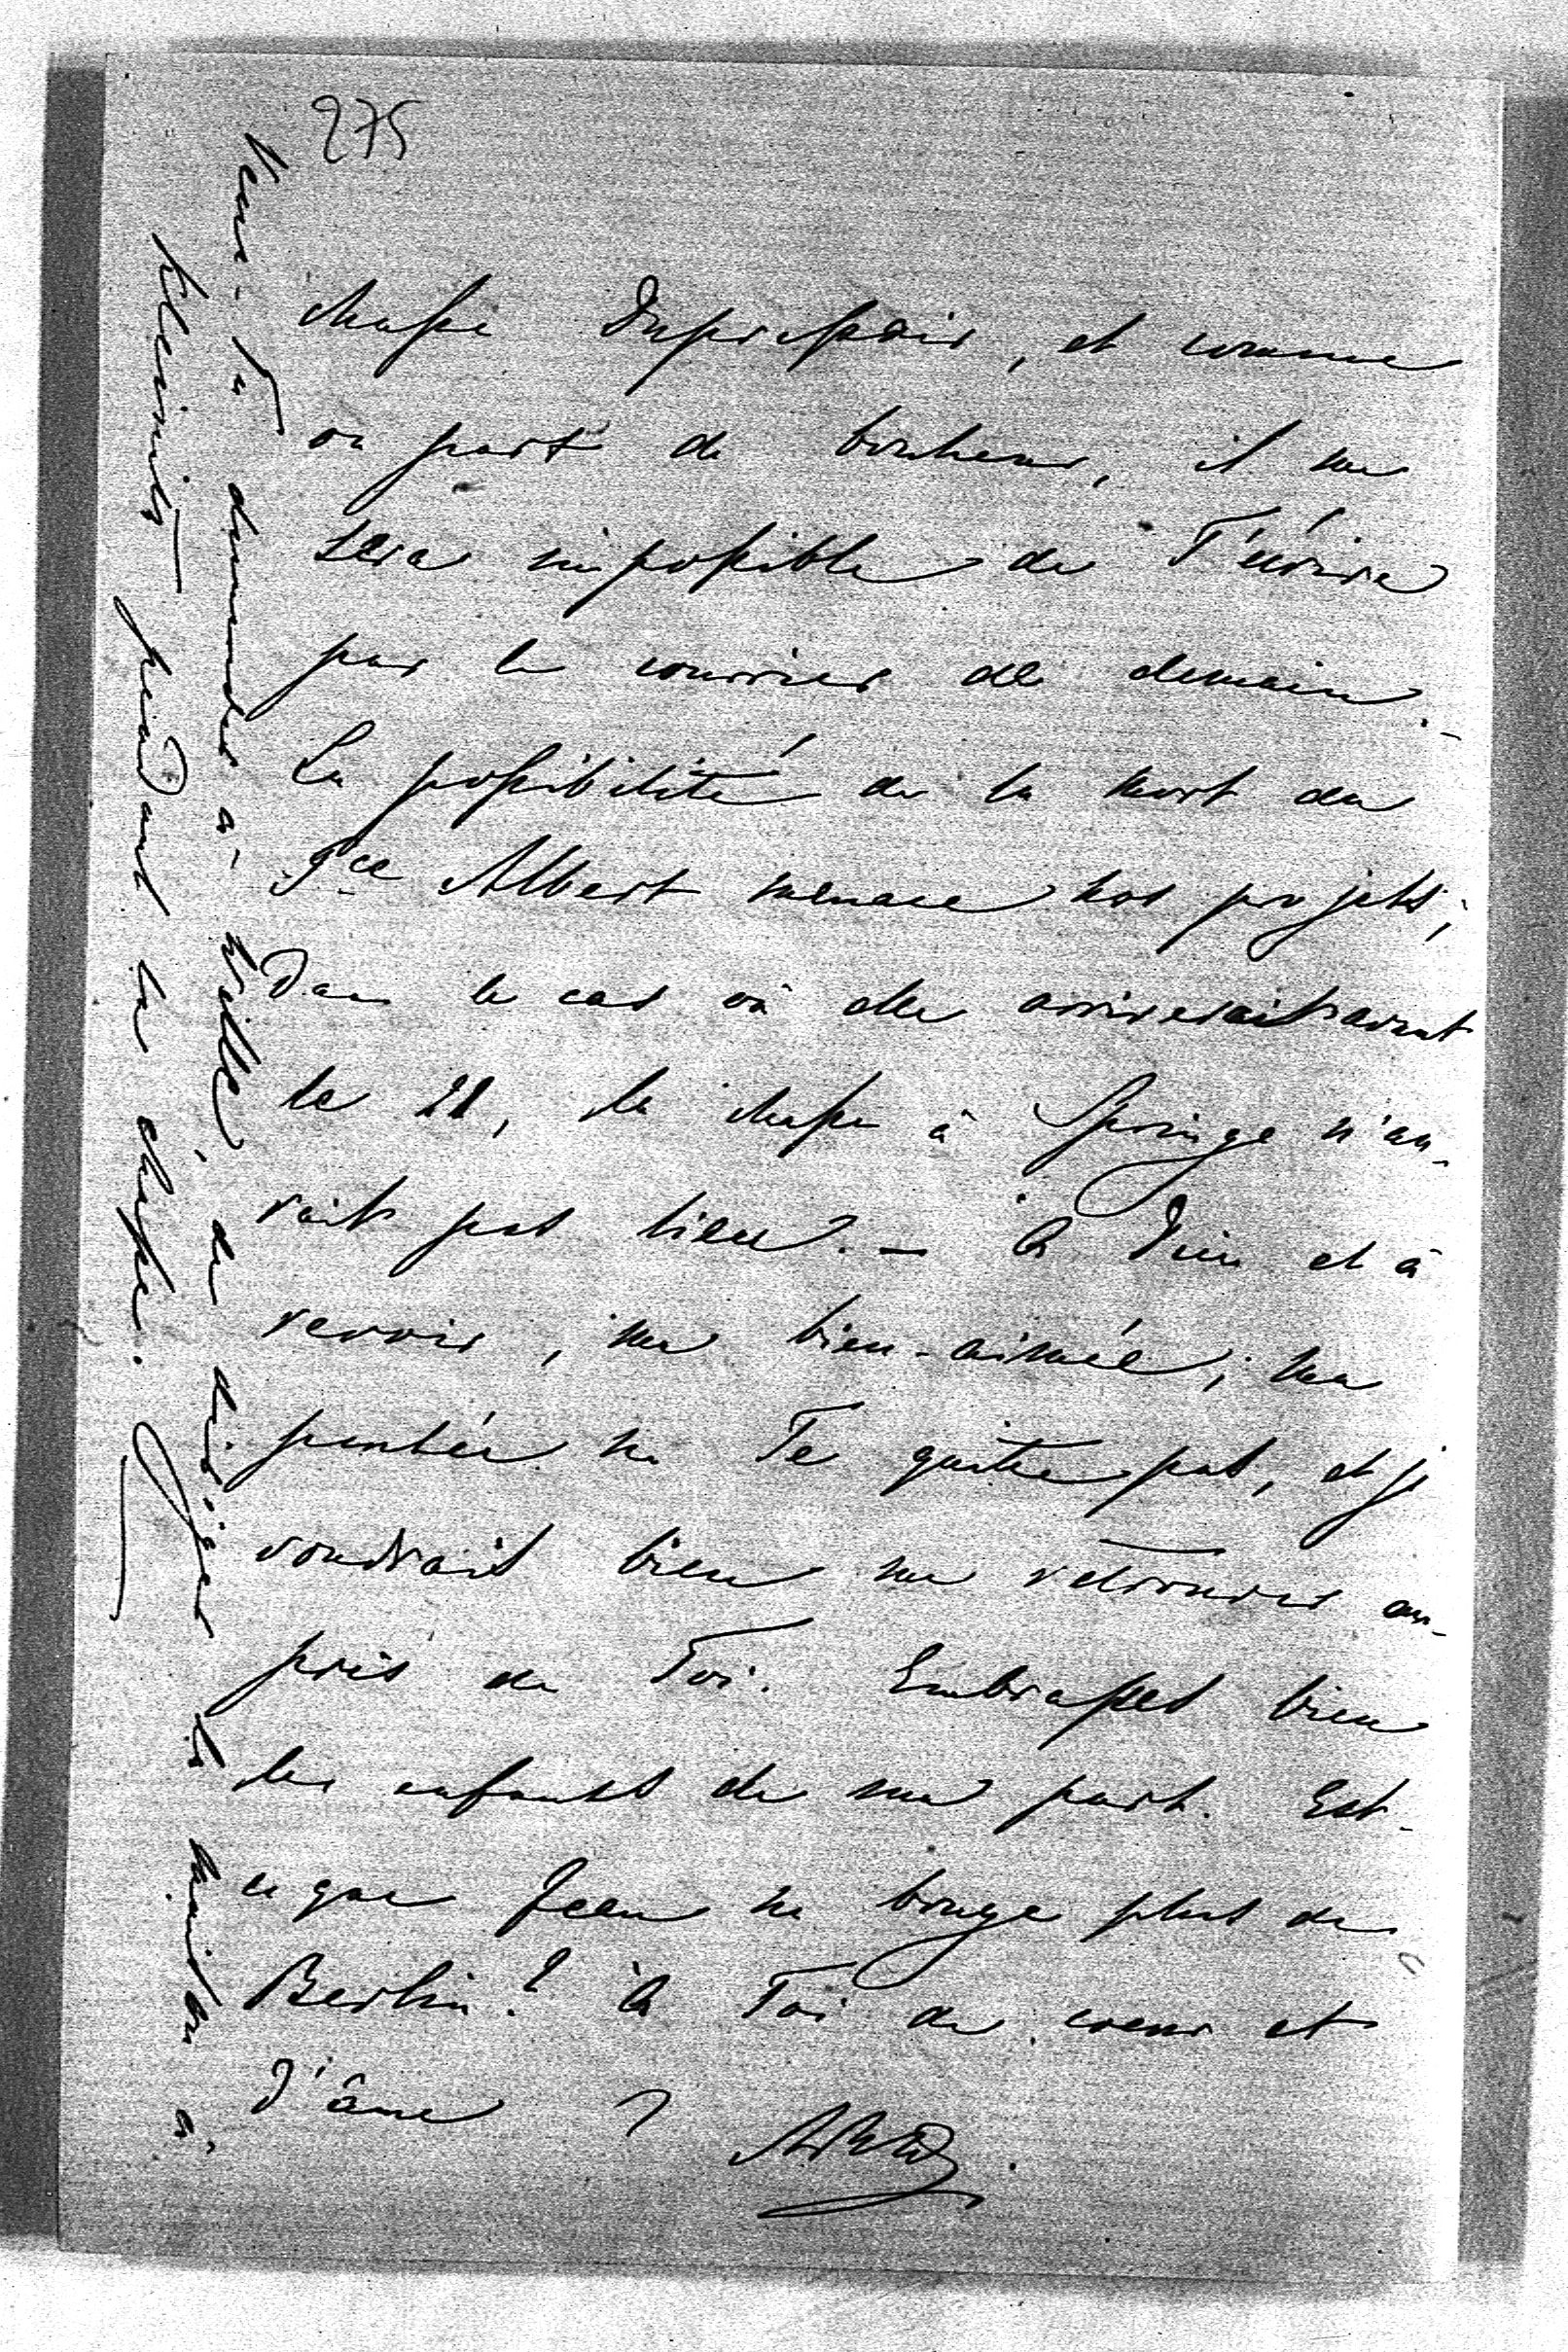 275
chasse Dupressoir, et comme
on part de bonheur, il me
sera impossible de T'écrire
par le courrier de demain. -
La possibilité de la mort du
Pce Albert menace nos projets;
Dans le cas où elle arriverait avant
le 21, la chasse à Springe n'au-
rait pas lieu. - À Dieu et à
revoir, ma bien-aimée; ma
pensée ne Te quitte pas, et je
voudrais bien me retrouver au-
près de Toi. Embrasses bien
les enfants de ma part. Est-
ce que Jean ne bouge plus de
Berlin? À Toi de cœur et
d'âme
Veux-Tu demander à Wille, de diriger la à
pendant la chasse.